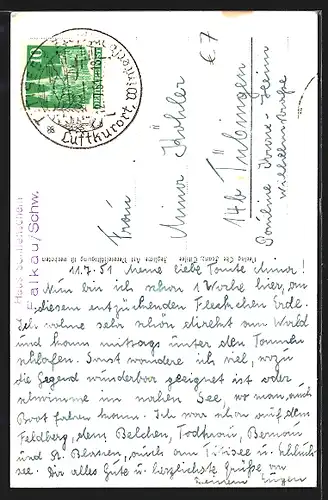 10
TITISEE
Luftkurort, Wintersp
€ 7
Frau
Minna Köhler
14b Tübingen
Pauline Krone-Heim
Wilhelmstraße
Haus Sonnenschein
Falkau/Schw.
11.7.51 Meine liebe Tante Minna!
Nun bin ich schon 1 Woche hier, an
diesem entzückenden Fleckchen Erde.
Ich wohne sehr schön direkt am Wald
und kann mittags unter den Tannen
schlafen. Sonst wandere ich viel, wozu
die Gegend wunderbar geeignet ist oder
schwimme im nahen See, wo man auch
Boot fahren kann. Ich war schon auf dem
Feldberg, dem Belchen, Todtnau, Bernau
und St. Blasien, auch am Titisee u. Schluch-
see. Dir alles Gute u. herzlichste Grüße von
Deinem Eugen